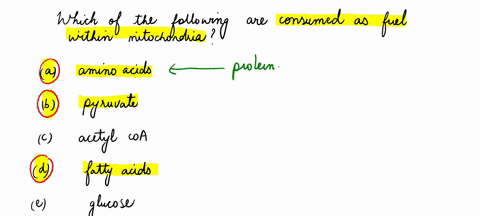 Which of the following are consumed as fuel
within mitochondria?
(a) amino acids ← protein.
(b) pyruvate
(c) acetyl coA
(d) fatty acids
(e) glucose